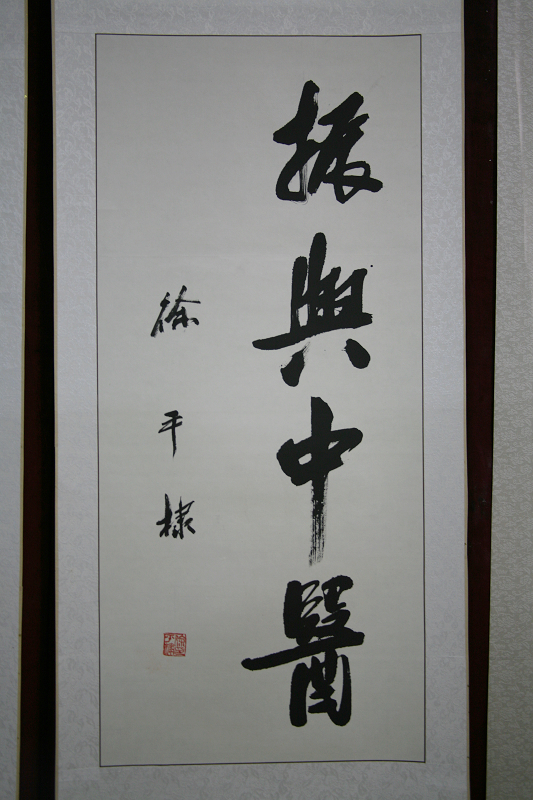 振興中醫
徐平棣